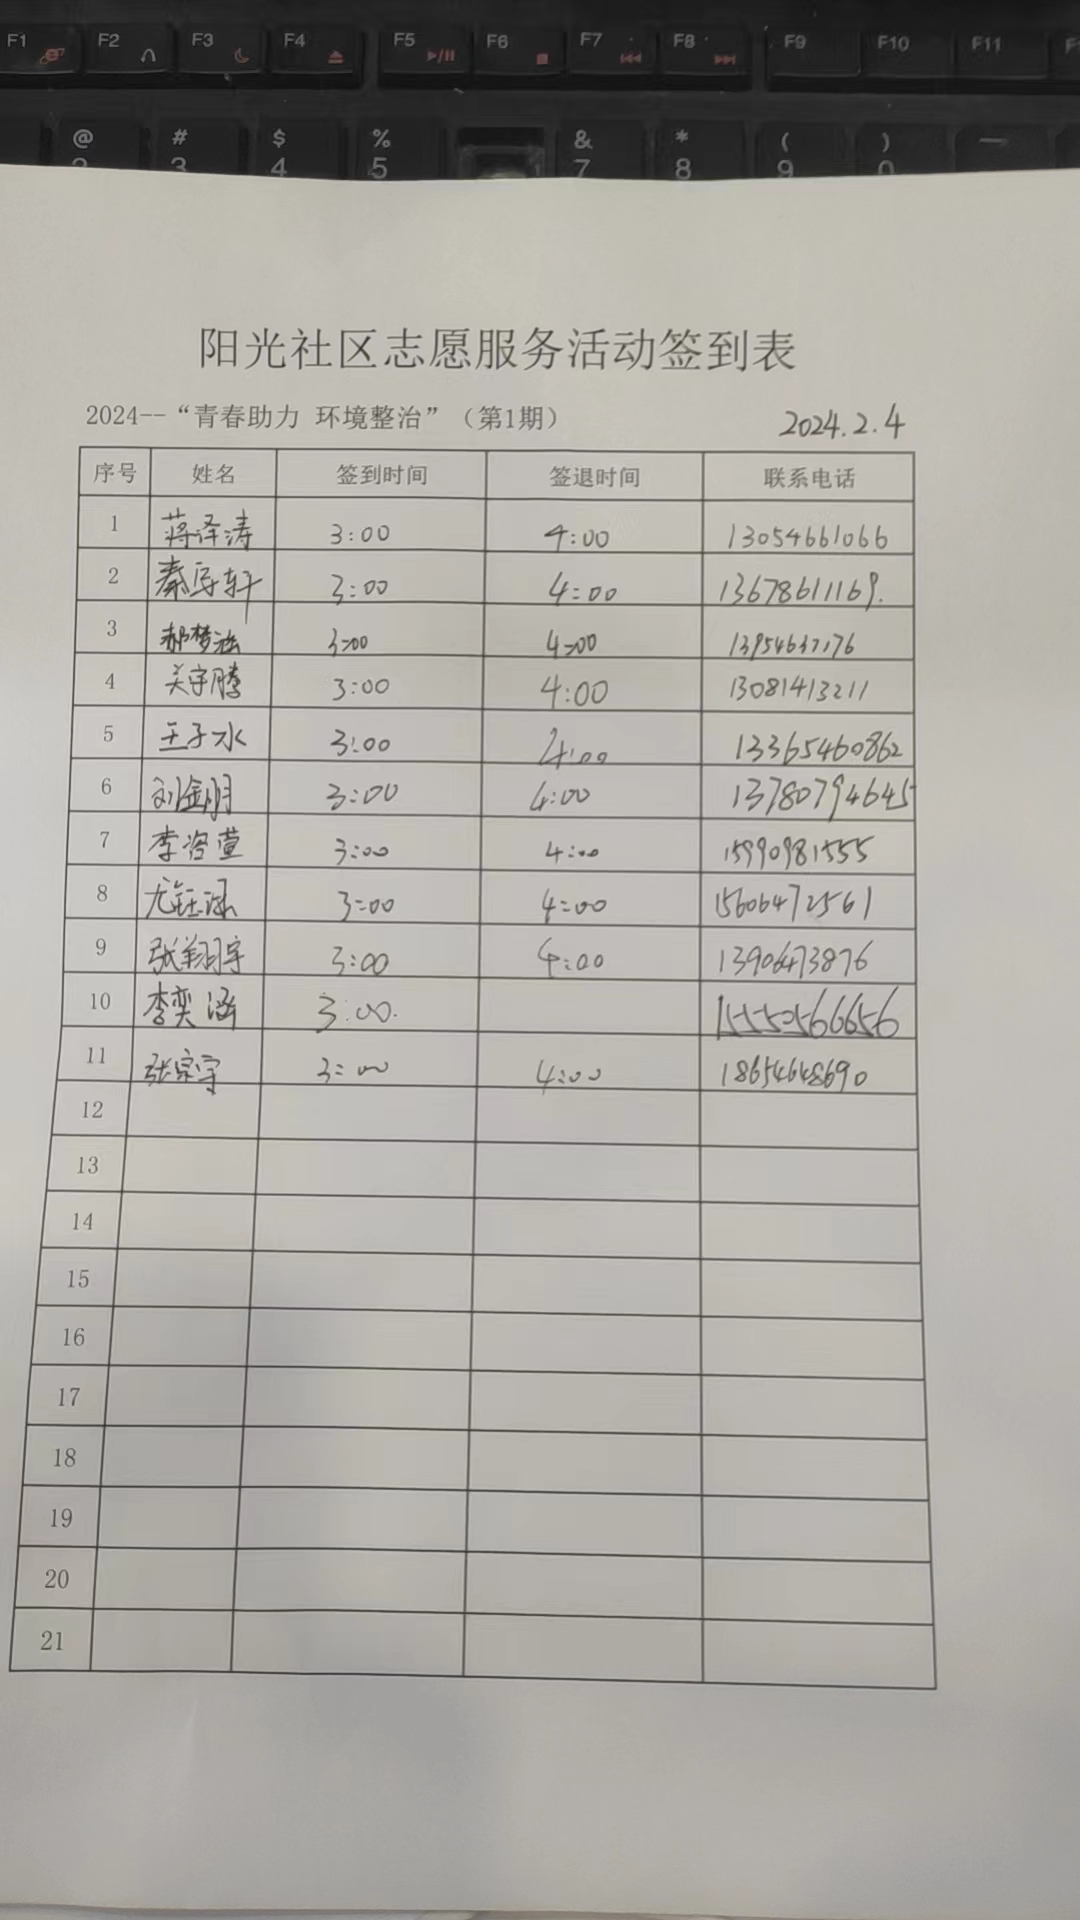 F1 F2 F3 F4 F5 F6 F7 F8 F9 F10 F11
@ # $ % & * ( )
3 4 5 7 8 9 0
阳光社区志愿服务活动签到表
2024--“青春助力 环境整治”（第1期） 2024.2.4
序号 姓名 签到时间 签退时间 联系电话
1 蒋泽涛 3:00 4:00 13054661066
2 3:00 4:00 13678611169.
3 郝梦涵 3:00 4:00
4 关宇腾 3:00 4:00 13081413211
5 王子水 3:00 4:00 13365460862
6 刘金朋 3:00 4:00 13780794645
7 李洛萱 3:00 4:00 15990981555
8 尤钰涵 3:00 4:00 15606472561
9 张翔宇 3:00 4:00 13906473876
10 李奕涵 3:00. 15550566656
11 张宗宇 3:00 4:00 18654648690
12
13
14
15
16
17
18
19
20
21